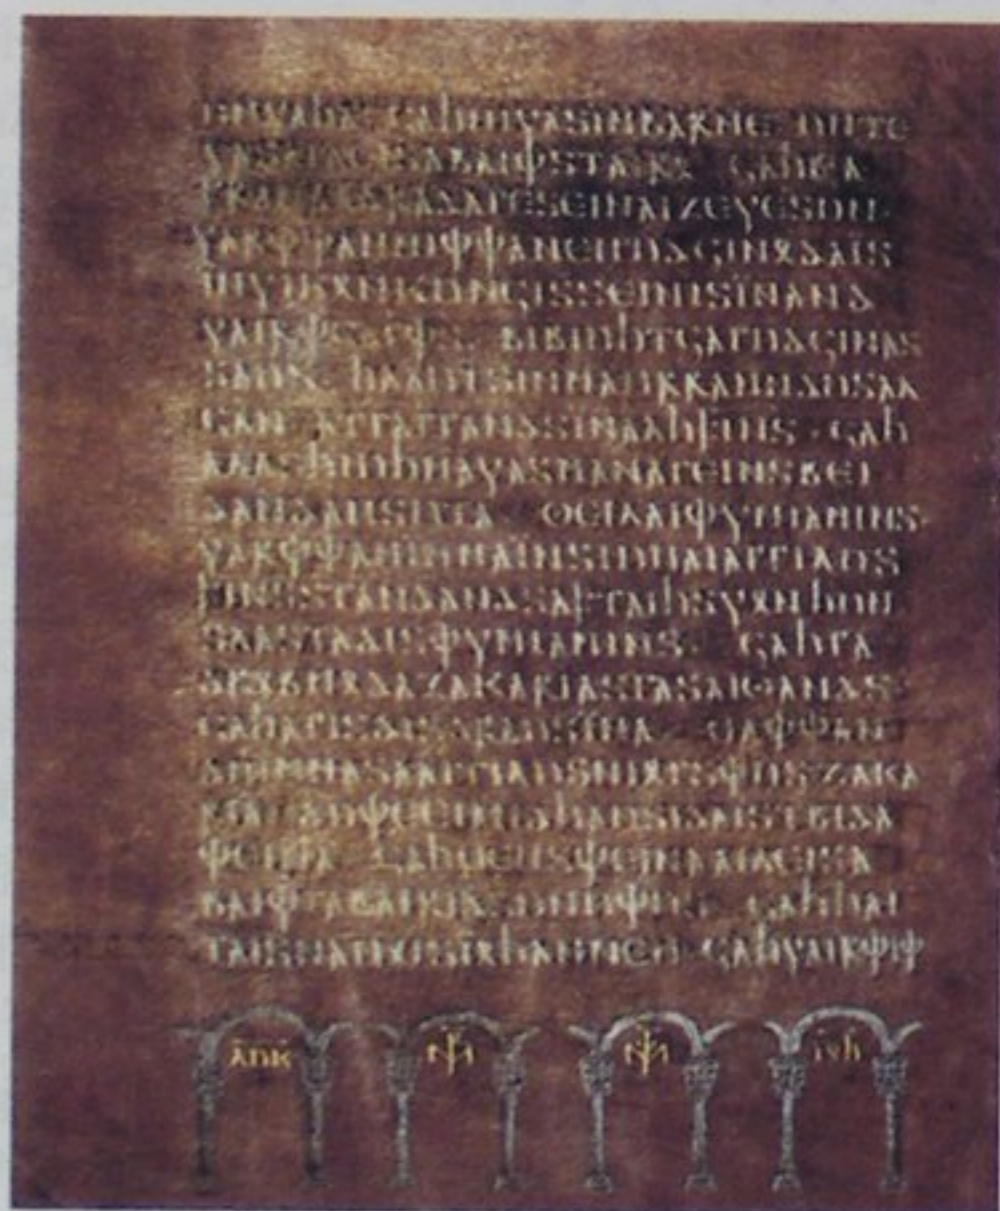 𐌿𐌽𐍅𐌰𐌷𐌰 · 𐌾𐌰𐌷𐌽𐌹𐍅𐌰𐍃𐌹𐌼𐌱𐌰𐍂𐌽𐌴 · 𐌿𐌽𐍄𐌴
𐍅𐌰𐍃𐌰𐌹𐌻𐌴𐌹𐍃𐌰𐌱𐌰𐌹𐌸𐍃𐍄𐌰𐌹𐍂𐍉 · 𐌾𐌰𐌷𐌱𐌰
𐍆𐍂𐌰𐌼𐌰𐌻𐌳𐍂𐌰𐌳𐌰𐌲𐌴𐍃𐌴𐌹𐌽𐌰𐌹𐌶𐌴𐍅𐌴𐍃𐌿𐌽 ·
𐍅𐌰𐍂𐌸𐌸𐌰𐌽𐌼𐌹𐌸𐌸𐌰𐌽𐌴𐌹𐌲𐌿𐌳𐌾𐌹𐌽𐍉𐌳𐌰𐌹̈𐍃
𐌹̈𐌽𐍅𐌹𐌺𐍉𐌽𐌺𐌿𐌽𐌾𐌹𐍃𐍃𐌴𐌹𐌽𐌹𐍃𐌹̈𐌽𐌰𐌽𐌳
𐍅𐌰𐌹𐍂𐌸𐌾𐌰𐌲𐌸𐍃 · 𐌱𐌹𐌱𐌹𐌿𐌷𐍄𐌾𐌰𐌲𐌿𐌳𐌾𐌹𐌽𐌰𐍃
𐍃𐌰𐌿𐍃 · 𐌷𐌻𐌰𐌿𐍄𐍃𐌹𐌼𐌼𐌰𐌿𐍂𐍂𐌰𐌽𐌽𐌳𐌿𐍃𐌰𐌻
𐌾𐌰𐌽 · 𐌰𐍄𐌲𐌰𐌲𐌲𐌰𐌽𐌳𐍃𐌹𐌽𐌰𐌻𐌷𐍆𐌹𐌽𐍃 · 𐌾𐌰𐌷
𐌰𐌻𐌻𐍃𐌷𐌹𐌿𐌷𐌼𐌰𐍅𐌰𐍃𐌼𐌰𐌽𐌰𐌲𐌴𐌹𐌽𐍃𐌱𐌴𐌹
𐌳𐌰𐌽𐌳𐌰𐌽𐍃𐌿𐍄𐌰 · 𐍈𐌴𐌹𐌻𐌰𐌹𐌸𐍅𐌼𐌹𐌰𐌼𐌹𐌽𐍃 ·
𐍅𐌰𐍂𐌸𐌸𐌰𐌽𐌹𐌼𐌼𐌰𐌹̈𐌽𐍃𐌹𐌿𐌽𐌰𐌹𐌰𐌲𐌲𐌹𐌻𐌿𐍃
𐍆𐌹𐌽𐍃𐍃𐍄𐌰𐌽𐌳𐌰𐌽𐌳𐍃𐌰𐍆𐍄𐌰𐌹𐌷𐍃𐍅𐍉𐌽𐌷𐌿𐌽
𐍃𐌻𐌰𐍃𐍄𐌰𐌳𐌹𐍃𐌸𐍅𐌼𐌹𐌰𐌼𐌹𐌽𐍃 · 𐌾𐌰𐌷𐌲𐌰
𐌳𐍂𐍉𐌱𐌽𐍉𐌳𐌰𐌶𐌰𐌺𐌰𐍂𐌹𐌰𐍃𐌲𐌰𐍃𐌰𐌹𐍈𐌰𐌽𐌳𐍃 ·
𐌾𐌰𐌷𐌰𐌲𐌹𐍃𐌳𐌹𐍃𐌳𐍂𐌰𐌿𐍃𐌹̈𐌽𐌰 · 𐌵𐌰𐌸𐌸𐌰𐌽
𐌳𐌿𐌹𐌼𐌼𐌰𐍃𐌰𐌰𐌲𐌲𐌹𐌻𐌿𐍃𐌽𐌹𐍉𐌲𐍃𐌸𐌿𐍃𐌶𐌰𐌺𐌰
𐍂𐌹𐌰 · 𐌳𐌿𐌸𐌴𐌴𐌹𐌰𐌽𐌳𐌷𐌰𐌿𐍃𐌹𐌳𐌰𐌹̈𐍃𐍄𐌱𐌹𐌳𐌰
𐌸𐌴𐌹𐌽𐌰 · 𐌾𐌰𐌷𐌵𐌴𐌽𐍃𐌸𐌴𐌹𐌽𐌰𐌰𐌹𐌻𐌴𐌹𐍃𐌰
𐌱𐌰𐌹𐌸𐌲𐌰𐌱𐌰𐌹𐍂𐌹𐌳𐍃𐌿𐌽𐌿𐌸𐌿𐍃 · 𐌾𐌰𐌷𐌷𐌰𐌹
𐍄𐌰𐌹𐍃𐌽𐌰𐌼𐍉𐌹𐍃𐌹̈𐍉𐌷𐌰𐌽𐌽𐌴𐌽 · 𐌾𐌰𐌷𐍅𐌰𐌹𐍂𐌸𐌹𐌸
𐌻𐌿𐌺 𐌹𐍉𐌷